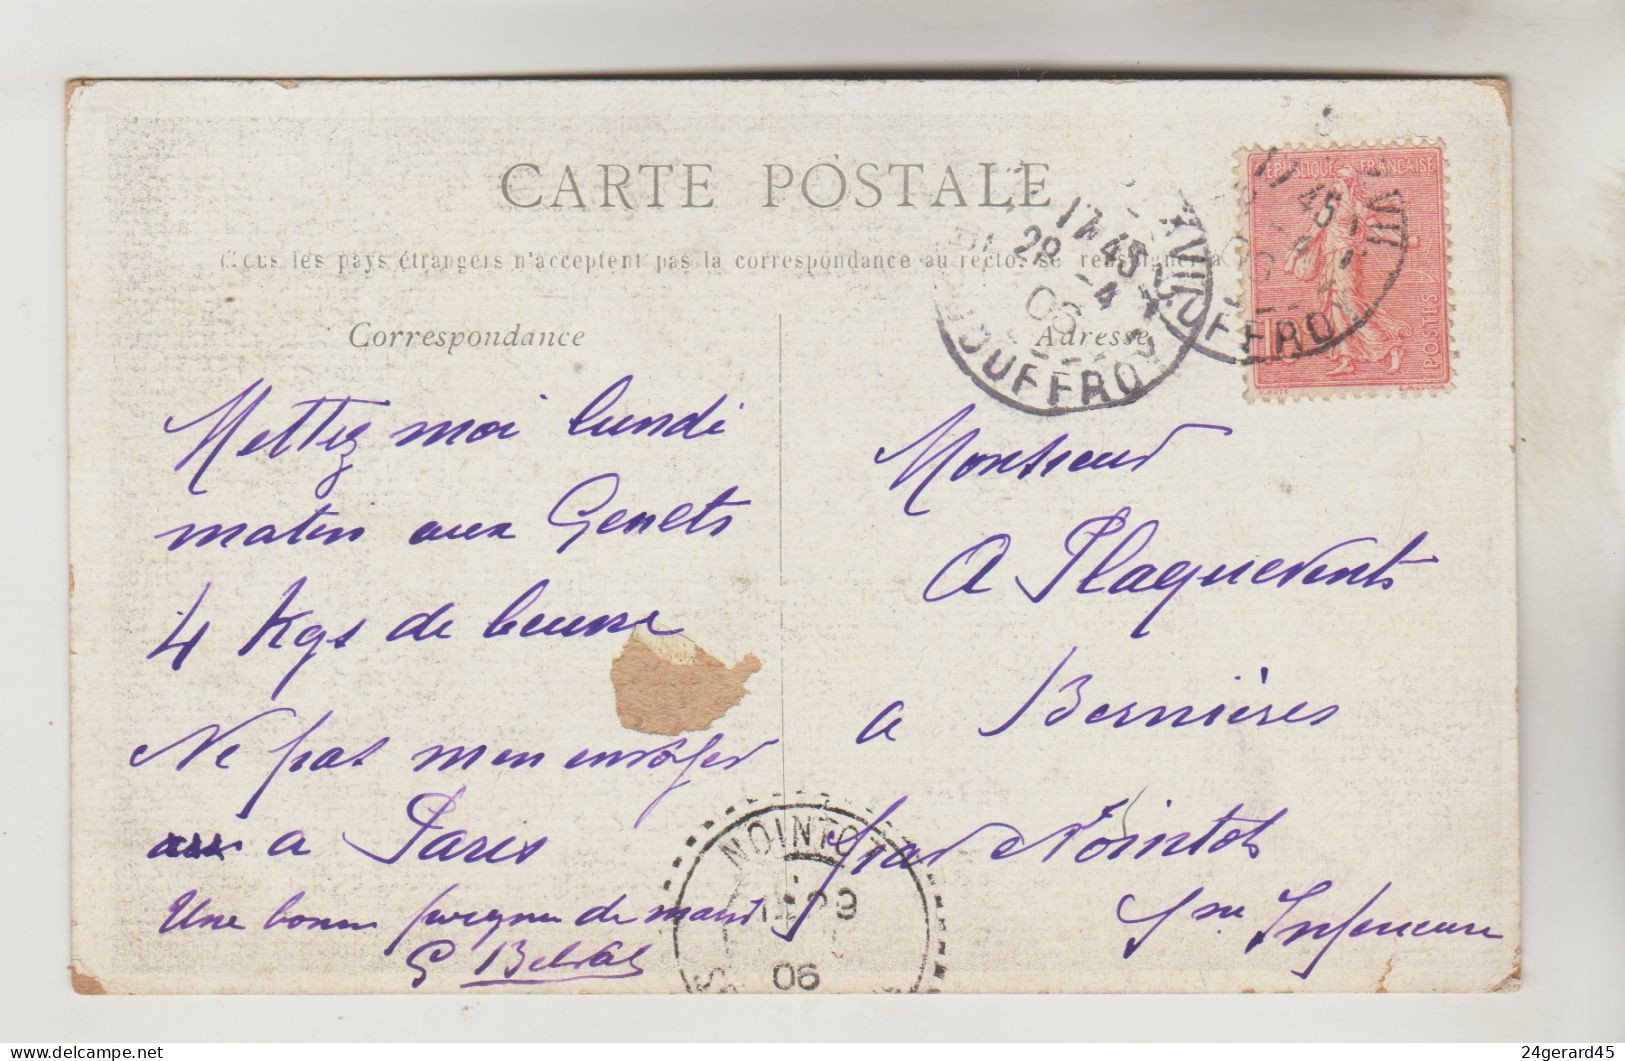 CARTE POSTALE
Tous les pays étrangers n'acceptent pas la correspondance au recto. se renseigner à
Correspondance
Adresse
RÉPUBLIQUE FRANÇAISE
POSTES
17 45
28 - 4
06
JOUFFROY
17 45
JOUFFRO
Mettez moi lundi
matin aux Genets
4 Kgs de beurre
Ne pas men envoyer
a Paris
Une bonne poignee de main
G Belval
Monsieur
A Plaquevents
a Bernières
par Nointot
Sne Inferieure
NOINTOT
06
24gerard45
delcampe.net